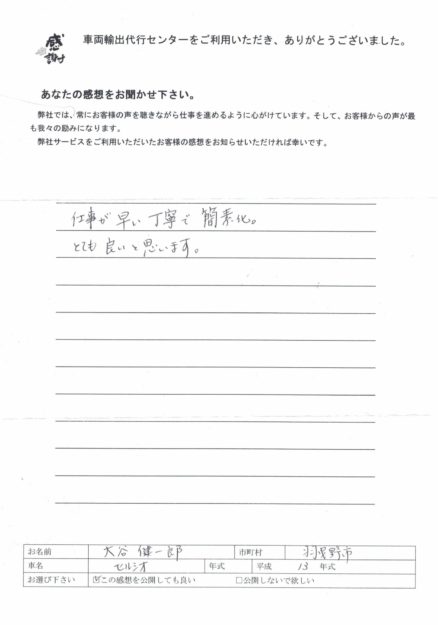 感謝
車両輸出代行センターをご利用いただき、ありがとうございました。
あなたの感想をお聞かせ下さい。
弊社では、常にお客様の声を聴きながら仕事を進めるように心がけています。そして、お客様からの声が最
も我々の励みになります。
弊社サービスをご利用いただいたお客様の感想をお知らせいただければ幸いです。
仕事が早い丁寧で簡素化。
とても良いと思います。
お名前 大谷健一郎 市町村 羽曳野市
車名 セルシオ 年式 平成 13 年式
お選び下さい ☑この感想を公開しても良い □公開しないで欲しい